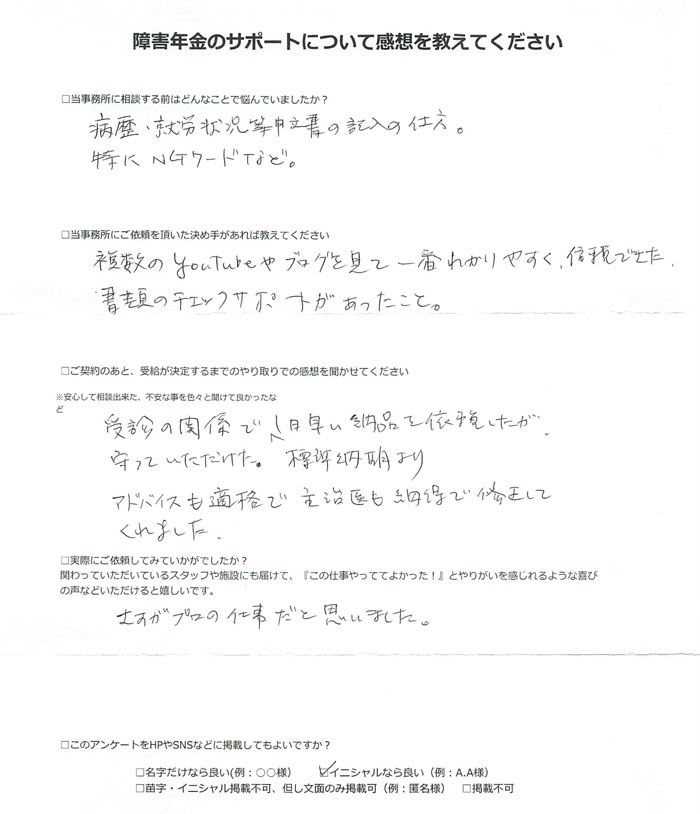 障害年金のサポートについて感想を教えてください
□当事務所に相談する前はどんなことで悩んでいましたか？
病歴・就労状況等申立書の記入の仕方。
特にNGワードなど。
□当事務所にご依頼を頂いた決め手があれば教えてください
複数のYouTubeやブログを見て一番わかりやすく、信頼できた。
書類のチェックサポートがあったこと。
□ご契約のあと、受給が決定するまでのやり取りでの感想を聞かせてください
※安心して相談出来た、不安な事を色々と聞けて良かったな
ど
受診の関係で1日早い納品を依頼したが、
守っていただけた。 標準納期より
アドバイスも適格で主治医も納得で修正して
くれました。
□実際にご依頼してみていかがでしたか？
関わっていただいているスタッフや施設にも届けて、『この仕事やっててよかった！』とやりがいを感じれるような喜び
の声などいただけると嬉しいです。
さすがプロの仕事だと思いました。
□このアンケートをHPやSNSなどに掲載してもよいですか？
□名字だけなら良い(例：〇〇様） ☑イニシャルなら良い（例：A.A様）
□苗字・イニシャル掲載不可、但し文面のみ掲載可（例：匿名様） □掲載不可